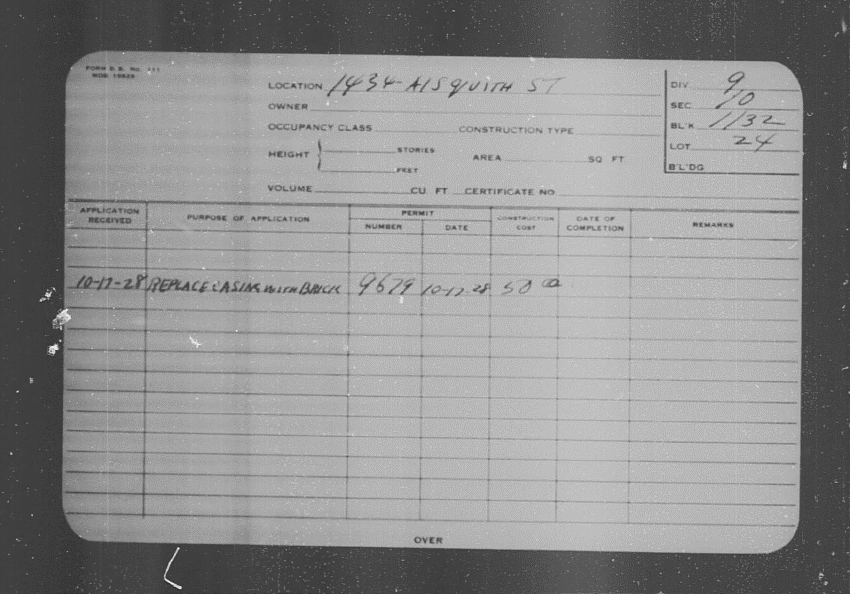 FORM B. E. No.
LOCATION 1434-AISQUITH ST
DIV 9
OWNER
SEC 10
OCCUPANCY CLASS CONSTRUCTION TYPE
BL'K 1132
HEIGHT STORIES AREA SQ FT.
LOT 24
FEET
B'L'DG
VOLUME CU. FT CERTIFICATE NO
APPLICATION RECEIVED PURPOSE OF APPLICATION PERMIT NUMBER DATE CONSTRUCTION COST DATE OF COMPLETION REMARKS
10-17-28 REPLACE CASING WITH BRICK 9679 10-17-28 50 00
OVER